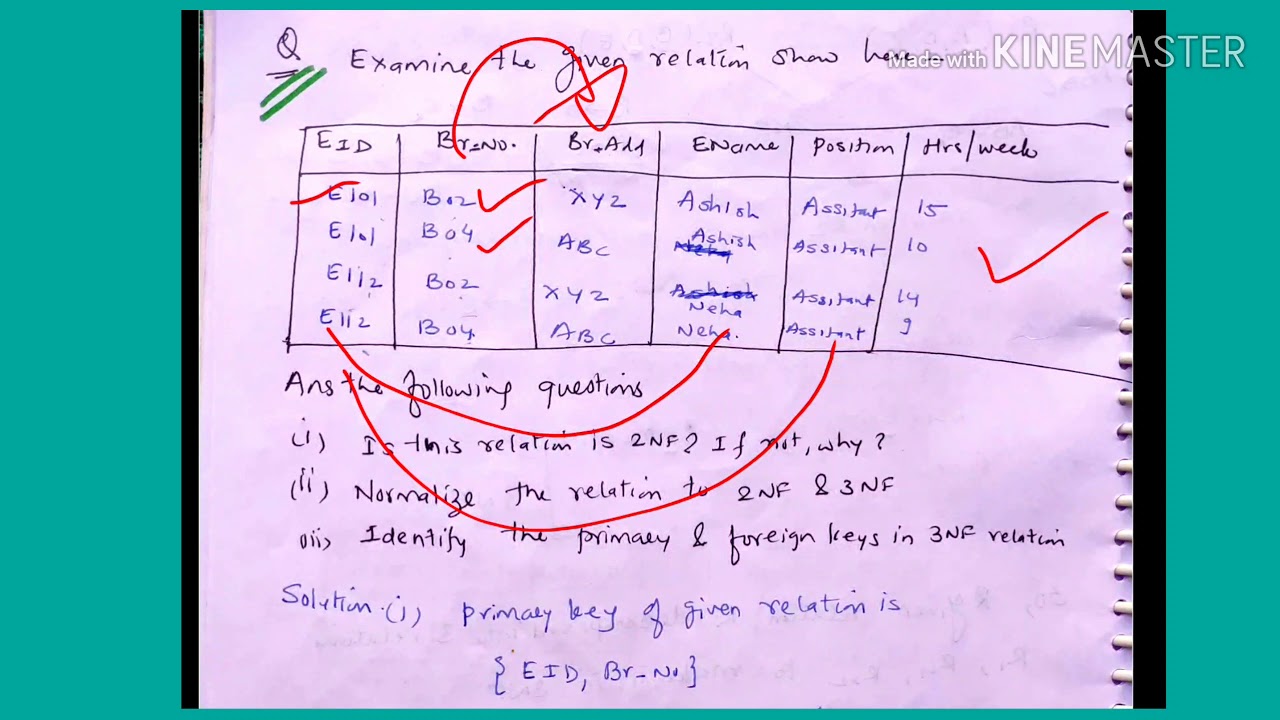 Q Examine the given relation show here-
Made with KINEMASTER
EID Br_No. Br_Add EName Position Hrs/week
E101 B02 XYZ Ashish Assitant 15
E101 B04 ABC Neha Ashish Assitant 10
E112 B02 XYZ Ashish Neha Assitant 14
E112 B04 ABC Neha. Assitant 9
Ans the following questions
(i) Is this relation is 2NF? If not, why?
(ii) Normalize the relation to 2NF & 3NF
(iii) Identify the primary & foreign keys in 3NF relation
Solution. (i) primary key of given relation is
{ EID, Br_No }